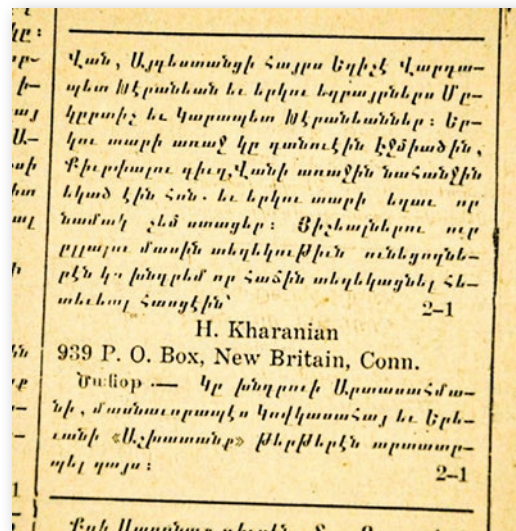 կը։
Վան, Այգեստանցի Հայրս Եղիշէ Վարդա–
պետ Խէրանեան եւ երկու եղբայրներս Մը–
կըրտիչ եւ Կարապետ Խէրանեաններ։ Եր–
կու տարի առաջ կը գտնուէին էջմիածին,
Քիւրփալու գիւղ,Վանի առաջին նահանջին
եկած էին հոն. եւ երկու տարի եղաւ որ
նամակ չեմ ստացեր։ Յիշեալներու ուր
ըլլալու մասին տեղեկութիւն ունեցողնե–
րէն կը խնդրեմ որ հաճին տեղեկացնել հե–
տեւեալ հասցէին՝ 2–1
H. Kharanian
939 P. O. Box, New Britain, Conn.
Ծանօթ.— Կը խնդրուի Արտասահմա–
նի, մասնաւորապէս Կովկասահայ եւ Երե–
ւանի «Աշխատանք» թերթերէն արտատպ–
պել զայս։ 2–1